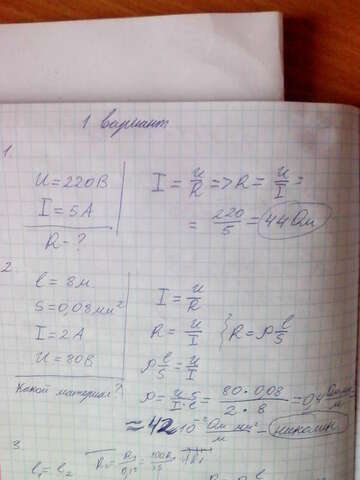 1 вариант
1.
U = 220В
I = 5А
R - ?
I = U/R => R = U/I =
= 220/5 = 44 Ом
2.
l = 8м
S = 0,08мм²
I = 2А
U = 80В
Какой материал?
I = U/R
R = U/I } R = ρ l/S
ρ l/S = U/I
ρ = U·S/I·l = 80·0,08/2·8 = 0,4 Ом·мм²/м
≈ 42·10⁻² Ом мм²/м - никелин
3.
l₁ = l₂